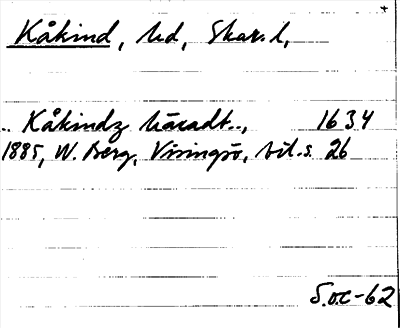 Kåkind, hd, Skar. l,
.. Kåkindz häradt.., 1634
1885, W. Berg, Visingsö, bil. s. 26
S.O.C-62